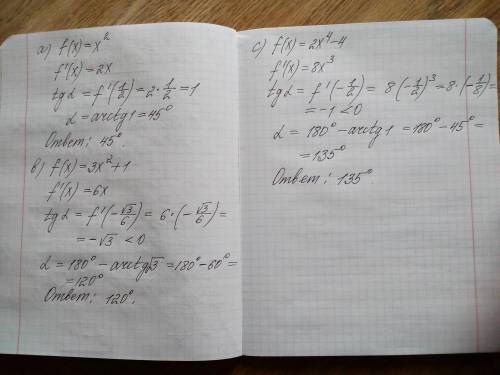 а) f(x)=x²
f'(x)=2x
tg α = f'(1/2)=2·1/2=1
α = arctg1=45°
Ответ: 45°.
в) f(x)=3x²+1
f'(x)=6x
tg α = f'(-√3/6)= 6·(-√3/6)=
= -√3 <0
α = 180° - arctg√3 =180°-60°=
=120°
Ответ: 120°.
с) f(x)=2x⁴-4
f'(x)=8x³
tg α = f'(-1/2)= 8(-1/2)³=8·(-1/8)=
= -1 <0
α = 180° - arctg1 =180°-45°=
=135°
Ответ: 135°.